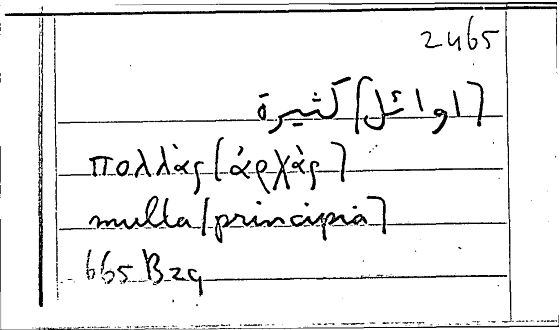 2465
[اوائل] كثيرة
πολλὰς [ἀρχὰς]
multa [principia]
665 B29